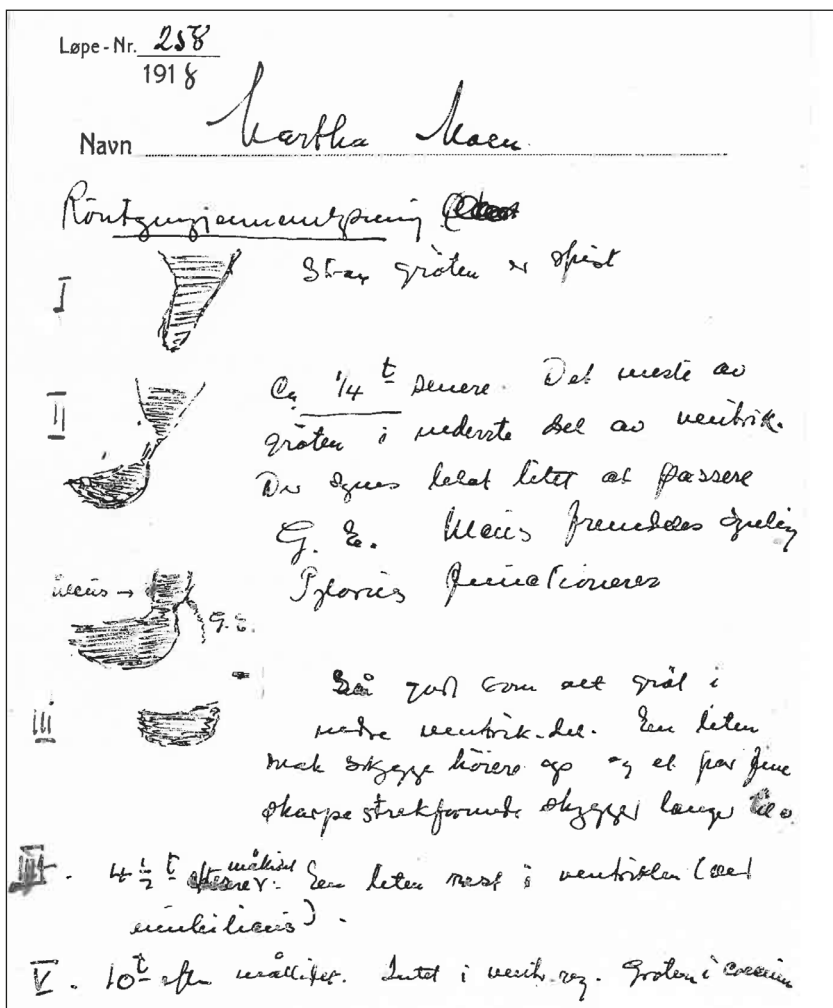 Løpe-Nr. 258
1918
Navn Martha Moen
Röntgengjennemlysning
I Strax gröten er spist
II Ca 1/4 t senere. Det meste av
gröten i nederste del av ventrik.
Der synes lidt at passere
G. E. Ulcus fremdeles synlig
Pylorus funktionerer
Ulcus →
G. E.
III Så godt som alt gröt i
nedre ventrik-del. En liten
svak skygge høiere op og et par fine
skarpe strekformede skygger længer
4 1/2 t efter måltidet En liten rest i ventriklen (ved
umbilicus).
V. 10 t efter måltidet. Intet i ventr. reg. Gröten i coecum